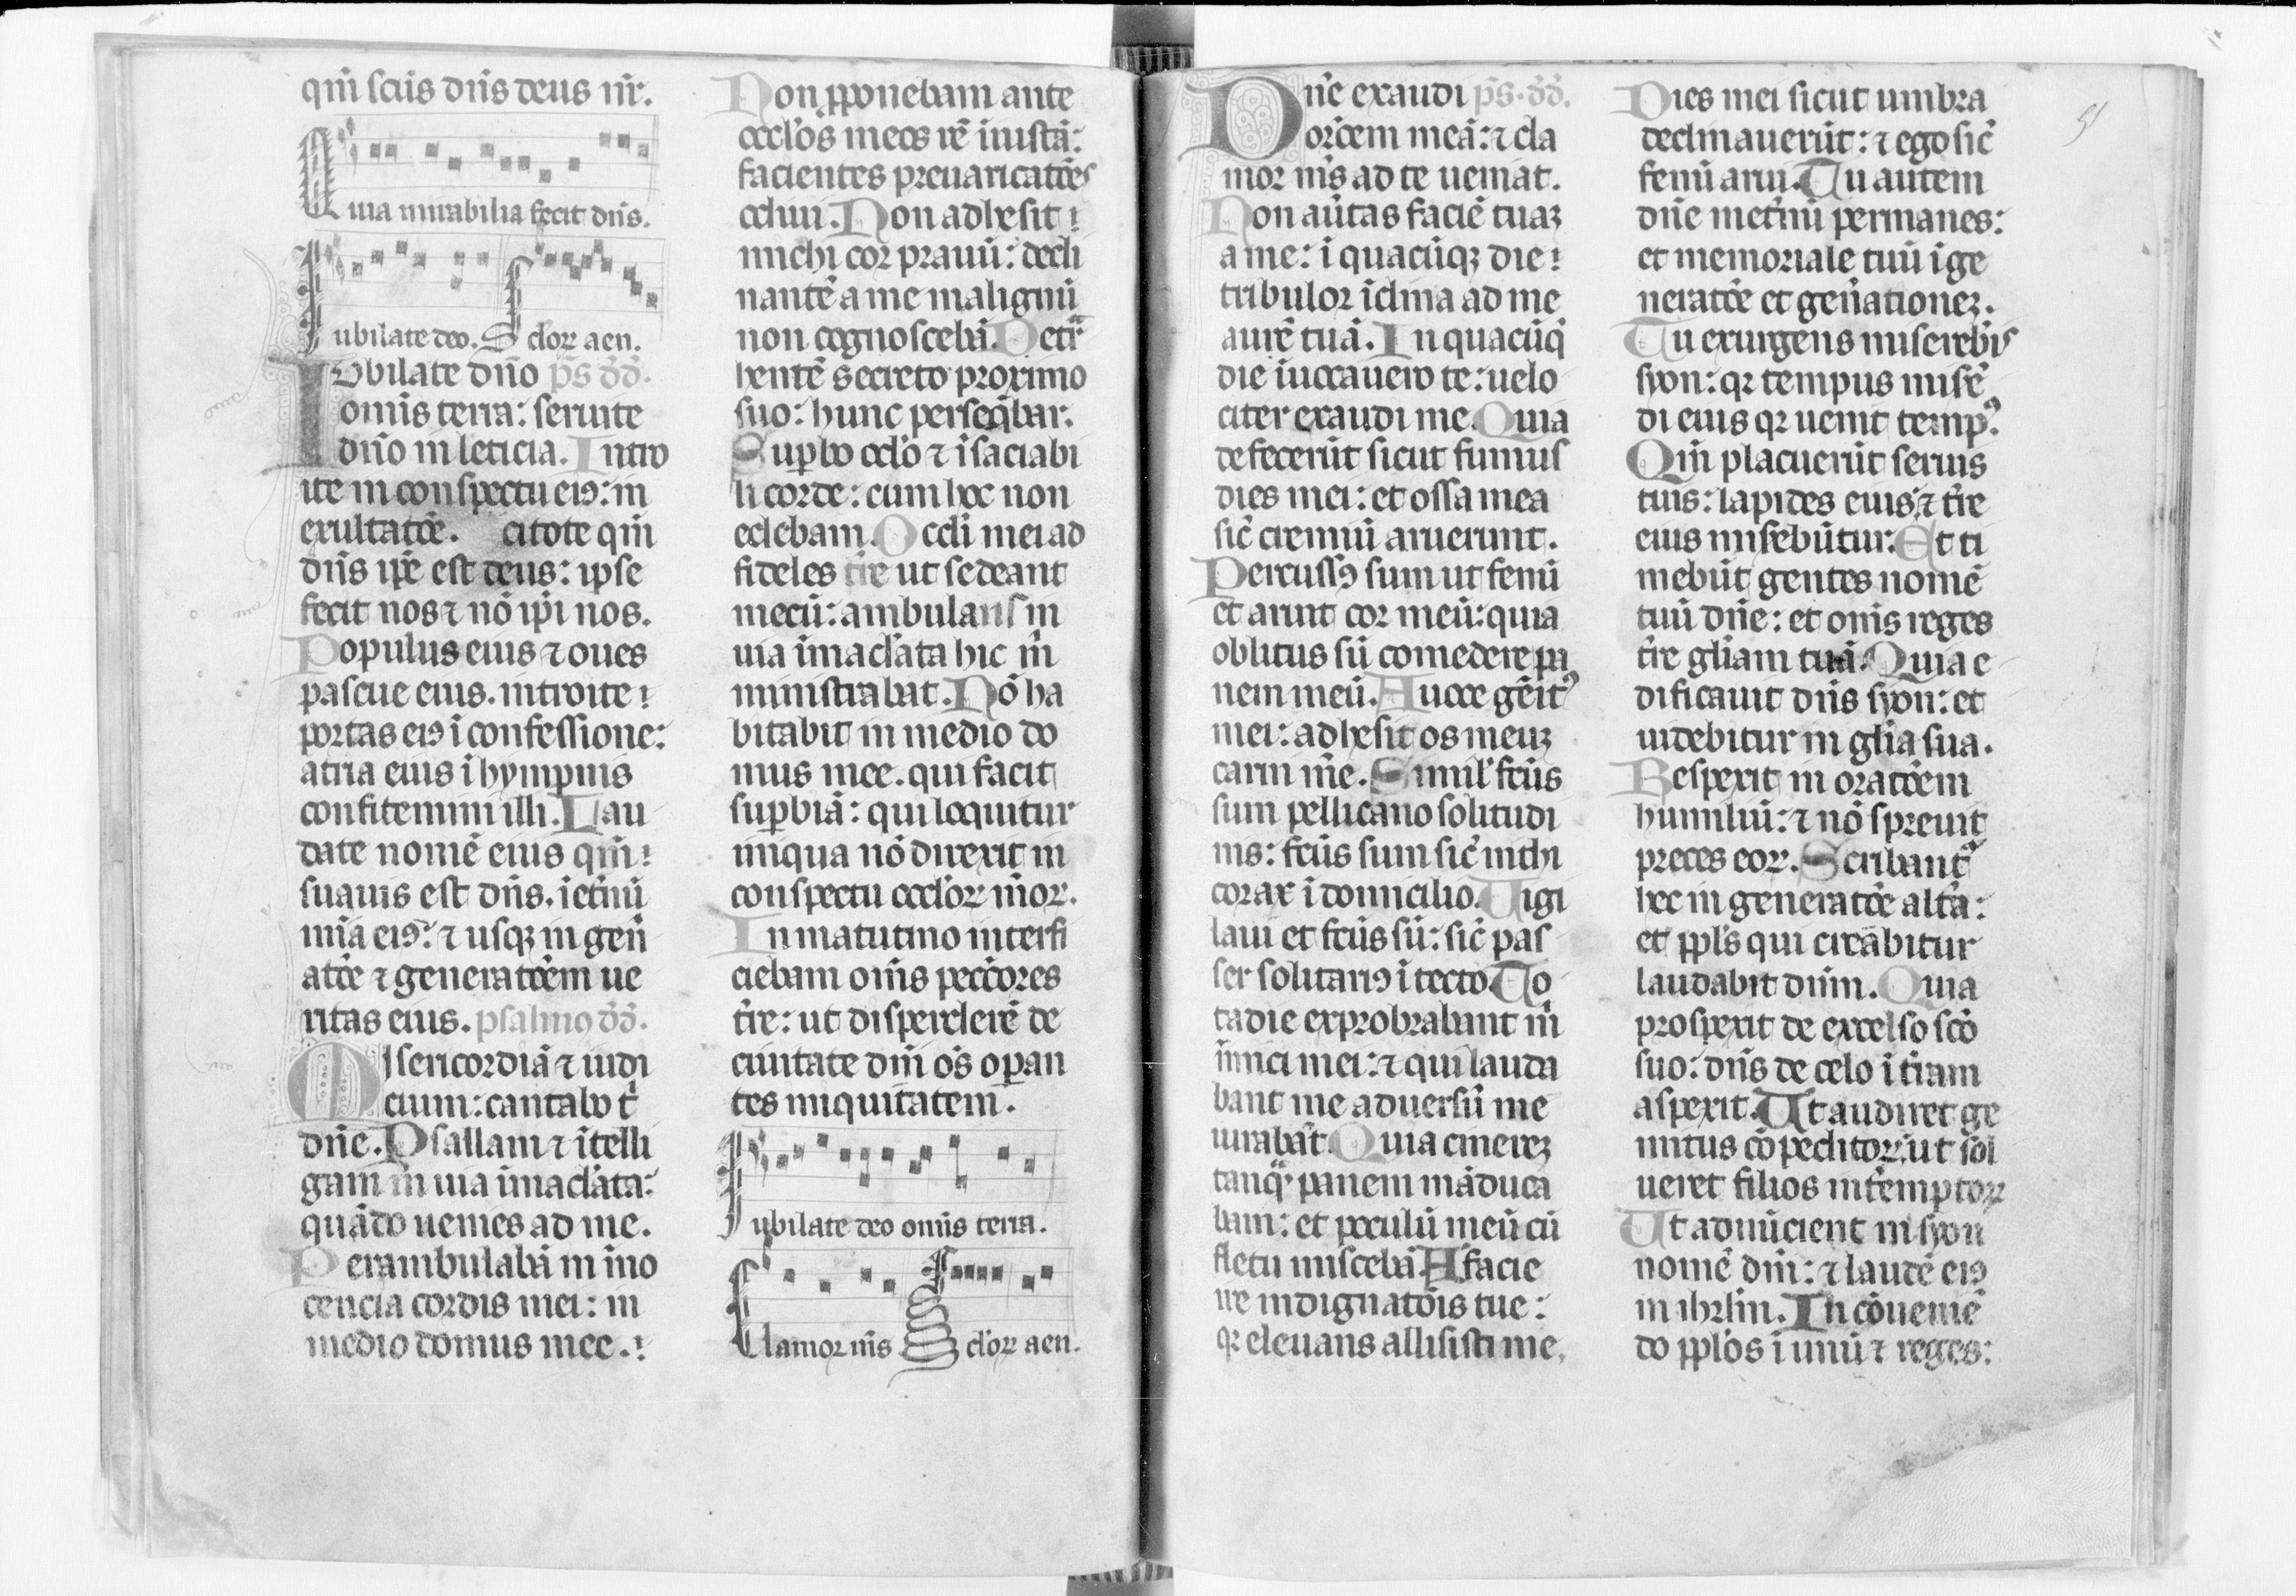 qm̄ sctūs dn̄s deus nr̄.
Quia mirabilia fecit dn̄s.
Iubilate deo. S clorꝝ aen.
Iubilate dn̄o ps̄ dd̄.
omīs terra: seruite
dn̄o in leticia. Intro
ite in conspectu eiꝰ: in
exultatōe. citote qm̄
dn̄s ip̄e est deus: ipse
fecit nos ⁊ nō ip̄i nos.
Populus eius ⁊ oues
pascue eius. introite
portas eiꝰ ī confessione:
atria eius ī hympnis
confitemini illi. Lau
date nomē eius qm̄
suauis est dn̄s. ī et̄nū
mīa eiꝰ: ⁊ usqꝫ in gen̄
atōe ⁊ generatōem ue
ritas eius. psalmꝰ dd̄.
Misericordiā ⁊ iudi
cium: cantabo t̄
dn̄e. Psallam ⁊ ītelli
gam in uia īmacl̄ata:
quādo uenies ad me.
Perambulabā in ino
cencia cordis mei: in
medio domus mee.
Non ꝓponebam ante
occlōs meos rē iniustā:
facientes preuaricatōes
odiui. Non adhesit
michi cor prauū: decli
nantē a me malignū
non cognoscebā. Detra
hentē secreto proximo
suo: hunc perseq̄bar.
Suꝑbo oclō ⁊ īsaciabi
li corde: cum hoc non
edebam. Occli mei ad
fideles tr̄e ut sedeant
mecū: ambulans in
uia imacl̄ata hic m̄
ministrabat. Nō ha
bitabit in medio do
mus mee. qui facit
suꝑbiā: qui loquitur
iniqua nō direxit in
conspectu occlorꝝ meor.
In matutino interfi
ciebam om̄s pecc̄ores
tr̄e: ut disperderē de
ciuitate dn̄i om̄s oꝑan
tes iniquitatem.
Iubilate deo omīs terra.
Clamor m̄s S clorꝝ aen.
Dn̄e exaudi ps̄. dd̄.
orōem meā: ⁊ cla
mor m̄s ad te ueniat.
Non au̅tas faciē tuaꝫ
a me: ī quacūqꝫ die
tribulor īclina ad me
aurē tuā. In quacūqꝫ
die iuocauero te: uelo
citer exaudi me. Quia
defecerūt sicut fumus
dies mei: et ossa mea
sic̄ cremiū aruerunt.
Percussꝰ sum ut fenū
et aruit cor meū: quia
oblitus sū comedere pa
nem meū. A uoce gēitꝰ
mei: adhesit os meuꝫ
carni mē. Simil̄ fcūs
sum pellicano solitudi
nis: fcūs sum sic̄ nicti
corax ī domicilio. Uigi
laui et fcūs sū: sic̄ pas
ser solitariꝰ ī tecto. To
ta die exprobrabant m̄
inīci mei: ⁊ qui lauda
bant me aduersū me
iurabāt. Quia cinereꝫ
tanqᷓ panem māduca
bam: et poculū meū cū
fletu miscebā. A facie
ire indignatōis tue:
qꝛ eleuans allisisti me.
Dies mei sicut umbra
declinauerūt: ⁊ ego sic̄
fenū arui. Tu autem
dn̄e inet̄nū permanes:
et memoriale tuū ī ge
neratōe et gen̄ationeꝫ.
Tu exurgens misereb̄is
syon: qꝛ tempus misē
di eius qꝛ uenit tempꝰ.
Qm̄ placuerūt seruis
tuis: lapides eius ⁊ tr̄e
eius misēbūtur. Et ti
mebūt gentes nomē
tuū dn̄e: et om̄s reges
tr̄e glīam tuā. Quia e
dificauit dn̄s syon: et
uidebitur in glīa sua.
Respexit in oratōem
humiliū: ⁊ nō spreuit
preces eorꝝ. Scribant᷑
hec in generatōe alt̄a:
et ppl̄s qui creābitur
laudabit dn̄m. Quia
prospexit de excelso scō
suo: dn̄s de celo ī tr̄am
aspexit. Ut audiret ge
mitus cōpeditorꝝ: ut sol
ueret filios int̄emptorꝝ
Ut adnūcient in syon
nomē dn̄i: ⁊ laudē eiꝰ
in ihrl̄m. In cōueniē
do ppl̄os ī unū ⁊ reges: